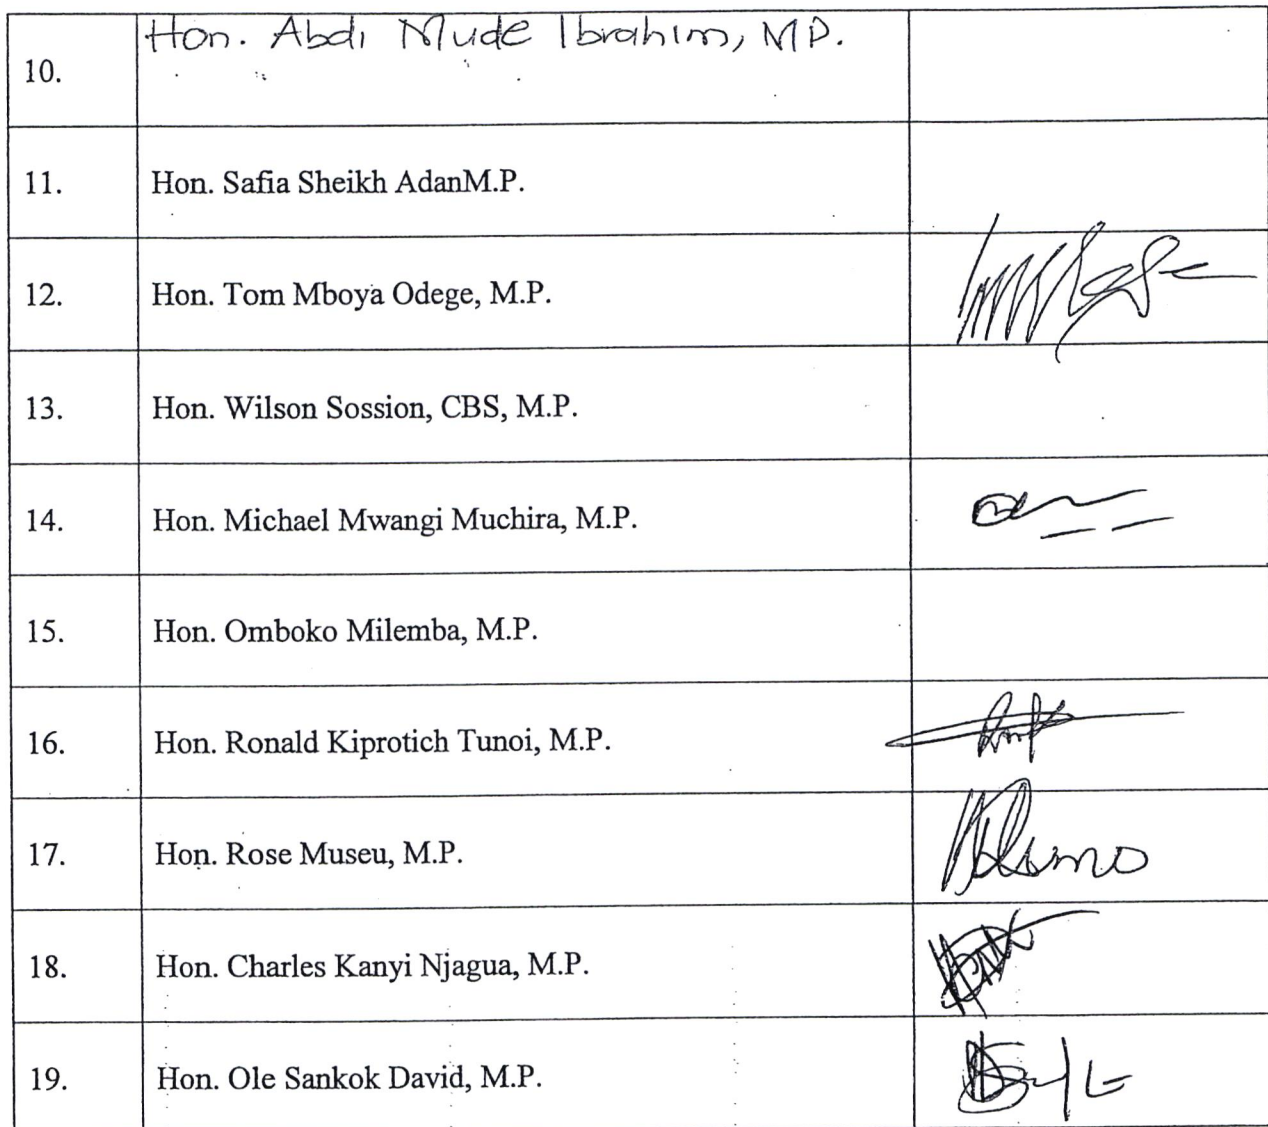 Hon. Abdi Mude Ibrahim, MP.
10.
11. Hon. Safia Sheikh AdanM.P.
12. Hon. Tom Mboya Odege, M.P.
13. Hon. Wilson Sossion, CBS, M.P.
14. Hon. Michael Mwangi Muchira, M.P.
15. Hon. Omboko Milemba, M.P.
16. Hon. Ronald Kiprotich Tunoi, M.P.
17. Hon. Rose Museu, M.P.
18. Hon. Charles Kanyi Njagua, M.P.
19. Hon. Ole Sankok David, M.P.